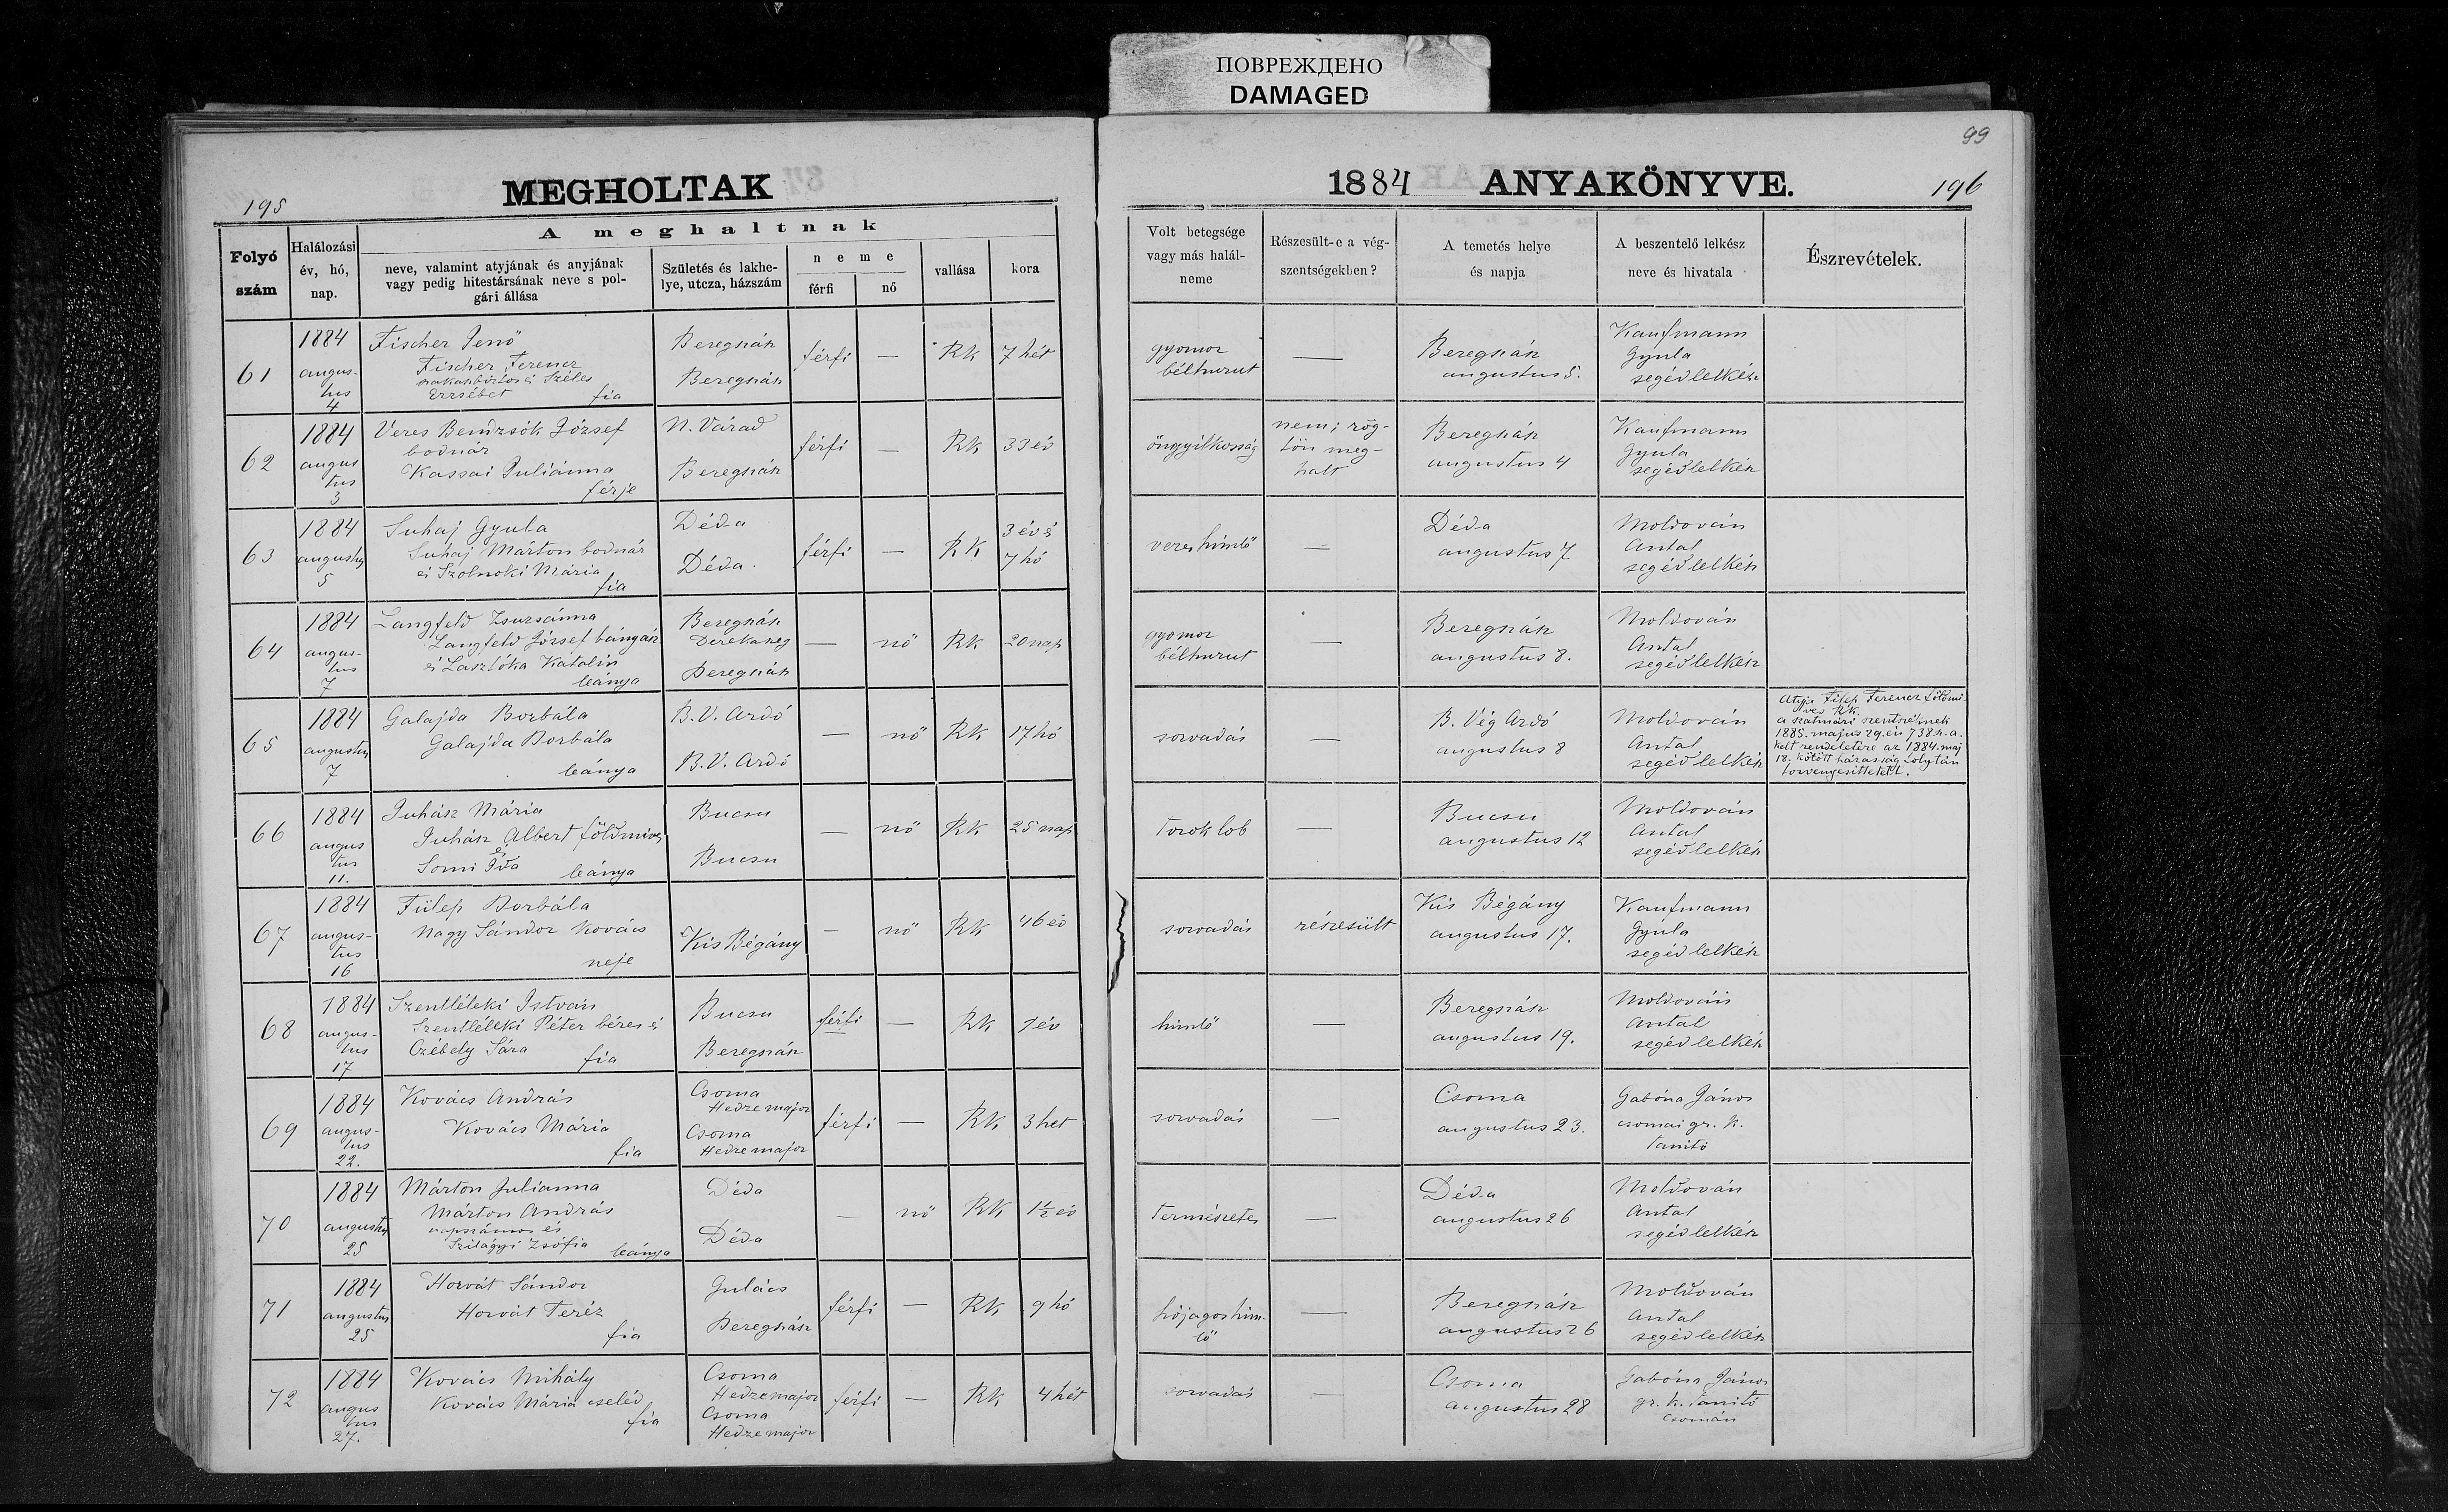 ПОВРЕЖДЕНО
DAMAGED
99
195
MEGHOLTAK
1884 ANYAKÖNYVE.
196
Folyó
szám
Halálozási
év, hó,
nap.
A meghaltnak
neve, valamint atyjának és anyjának
vagy pedig hitestársának neve s pol-
gári állása
Születés és lakhe-
lye, utcza, házszám
neme
férfi
nő
vallása
kora
Volt betegsége
vagy más halál-
neme
Részesült-e a vég-
szentségekben?
A temetés helye
és napja
A beszentelő lelkész
neve és hivatala
Észrevételek.
61
1884
augus-
tus
4
Fischer Jenő
Fischer Ferencz
Széles
Erzsébet fia
Beregszász
Beregszász
férfi
—
RK
7 hét
gyomor
bélhurut
—
Beregszász
augustus 5.
Kaufmann
Gyula
segédlelkész
62
1884
augus
tus
3
Veres Bendzsók József
bodnár
Kassai Juliánna
férje
N. Várad
Beregszász
férfi
—
RK
33 év
öngyilkosság
nem; rög-
tön meg-
halt
Beregszász
augustus 4
Kaufmann
Gyula
segédlelkész
63
1884
augustus
5
Suhaj Gyula
Suhaj Márton bodnár
és Szolnoki Mária
fia
Déda
Déda.
férfi
—
RK
3 év é
7 hó
veres himlő
—
Déda
augustus 7
Moldován
Antal
segédlelkész
64
1884
augus-
tus
7
Langfeld Zsuzsánna
Langfeld József bányász
és Laszlóka Katalin
leánya
Beregszász
Derekaszeg
Beregszász
—
nő
RK
20 nap
gyomor
bélhurut
—
Beregszász
augustus 8.
Moldován
Antal
segédlelkész
65
1884
augustus
7
Galajda Borbála
Galajda Borbála
leánya
B. V. Ardó
B. V. Ardó
—
nő
RK
17 hó
sorvadás
—
B. Vég Ardó
augustus 8
Moldován
Antal
segédlelkész
Atyja Filep Ferencz földmi-
ves RK.
a szatmári szentszéknek
1885. május 29.én 738 sz. a.
kelt rendeletére az 1884. maj
18. kötött házasság folytán
törvényesíttetett.
66
1884
augus
tus
11.
Juhász Mária
Juhász Albert földmives
és
Somi Ida leánya
Bucsu
Bucsu
—
nő
RK
25 nap
torok lob
—
Bucsu
augustus 12
Moldován
Antal
segédlelkész
67
1884
augus-
tus
16
Fülep Borbála
Nagy Sándor kovács
neje
Kis Bégány
—
nő
RK
46 év
sorvadás
részesült
Kis Bégány
augustus 17.
Kaufmann
Gyula
segédlelkész
68
1884
augus-
tus
17
Szentléleki István
Szentléleki Péter béres é
Czébely Sára fia
Bucsu
Beregszász
férfi
—
RK
1 év
himlő
—
Beregszász
augustus 19.
Moldován
Antal
segédlelkész
69
1884
augus-
tus
22.
Kovács András
Kovács Mária
fia
Csoma
Hedremajor
Csoma
Hedremajor
férfi
—
RK
3 het
sorvadás
—
Csoma
augustus 23.
Gabóna János
csomai gr. k.
tanitó
70
1884
augustus
25
Márton Julianna
Márton András
napszámos és
Szilágyi Zsófia leánya
Déda
Déda
—
nő
RK
1½ év
természetes
—
Déda
augustus 26
Moldován
Antal
segédlelkész
71
1884
augustus
25
Horvát Sándor
Horvát Teréz
fia
Gulács
Beregszász
férfi
—
RK
9 hó
hójagos him-
lő
—
Beregszász
augustus 26
Moldován
Antal
segédlelkész
72
1884
augus
tus
27.
Kovács Mihály
Kovács Mária cseléd
fia
Csoma
Hedremajor
Csoma
Hedremajor
férfi
—
RK
4 hét
sorvadás
—
Csoma
augustus 28
Gabóna János
gr. k. tanitó
Csomán